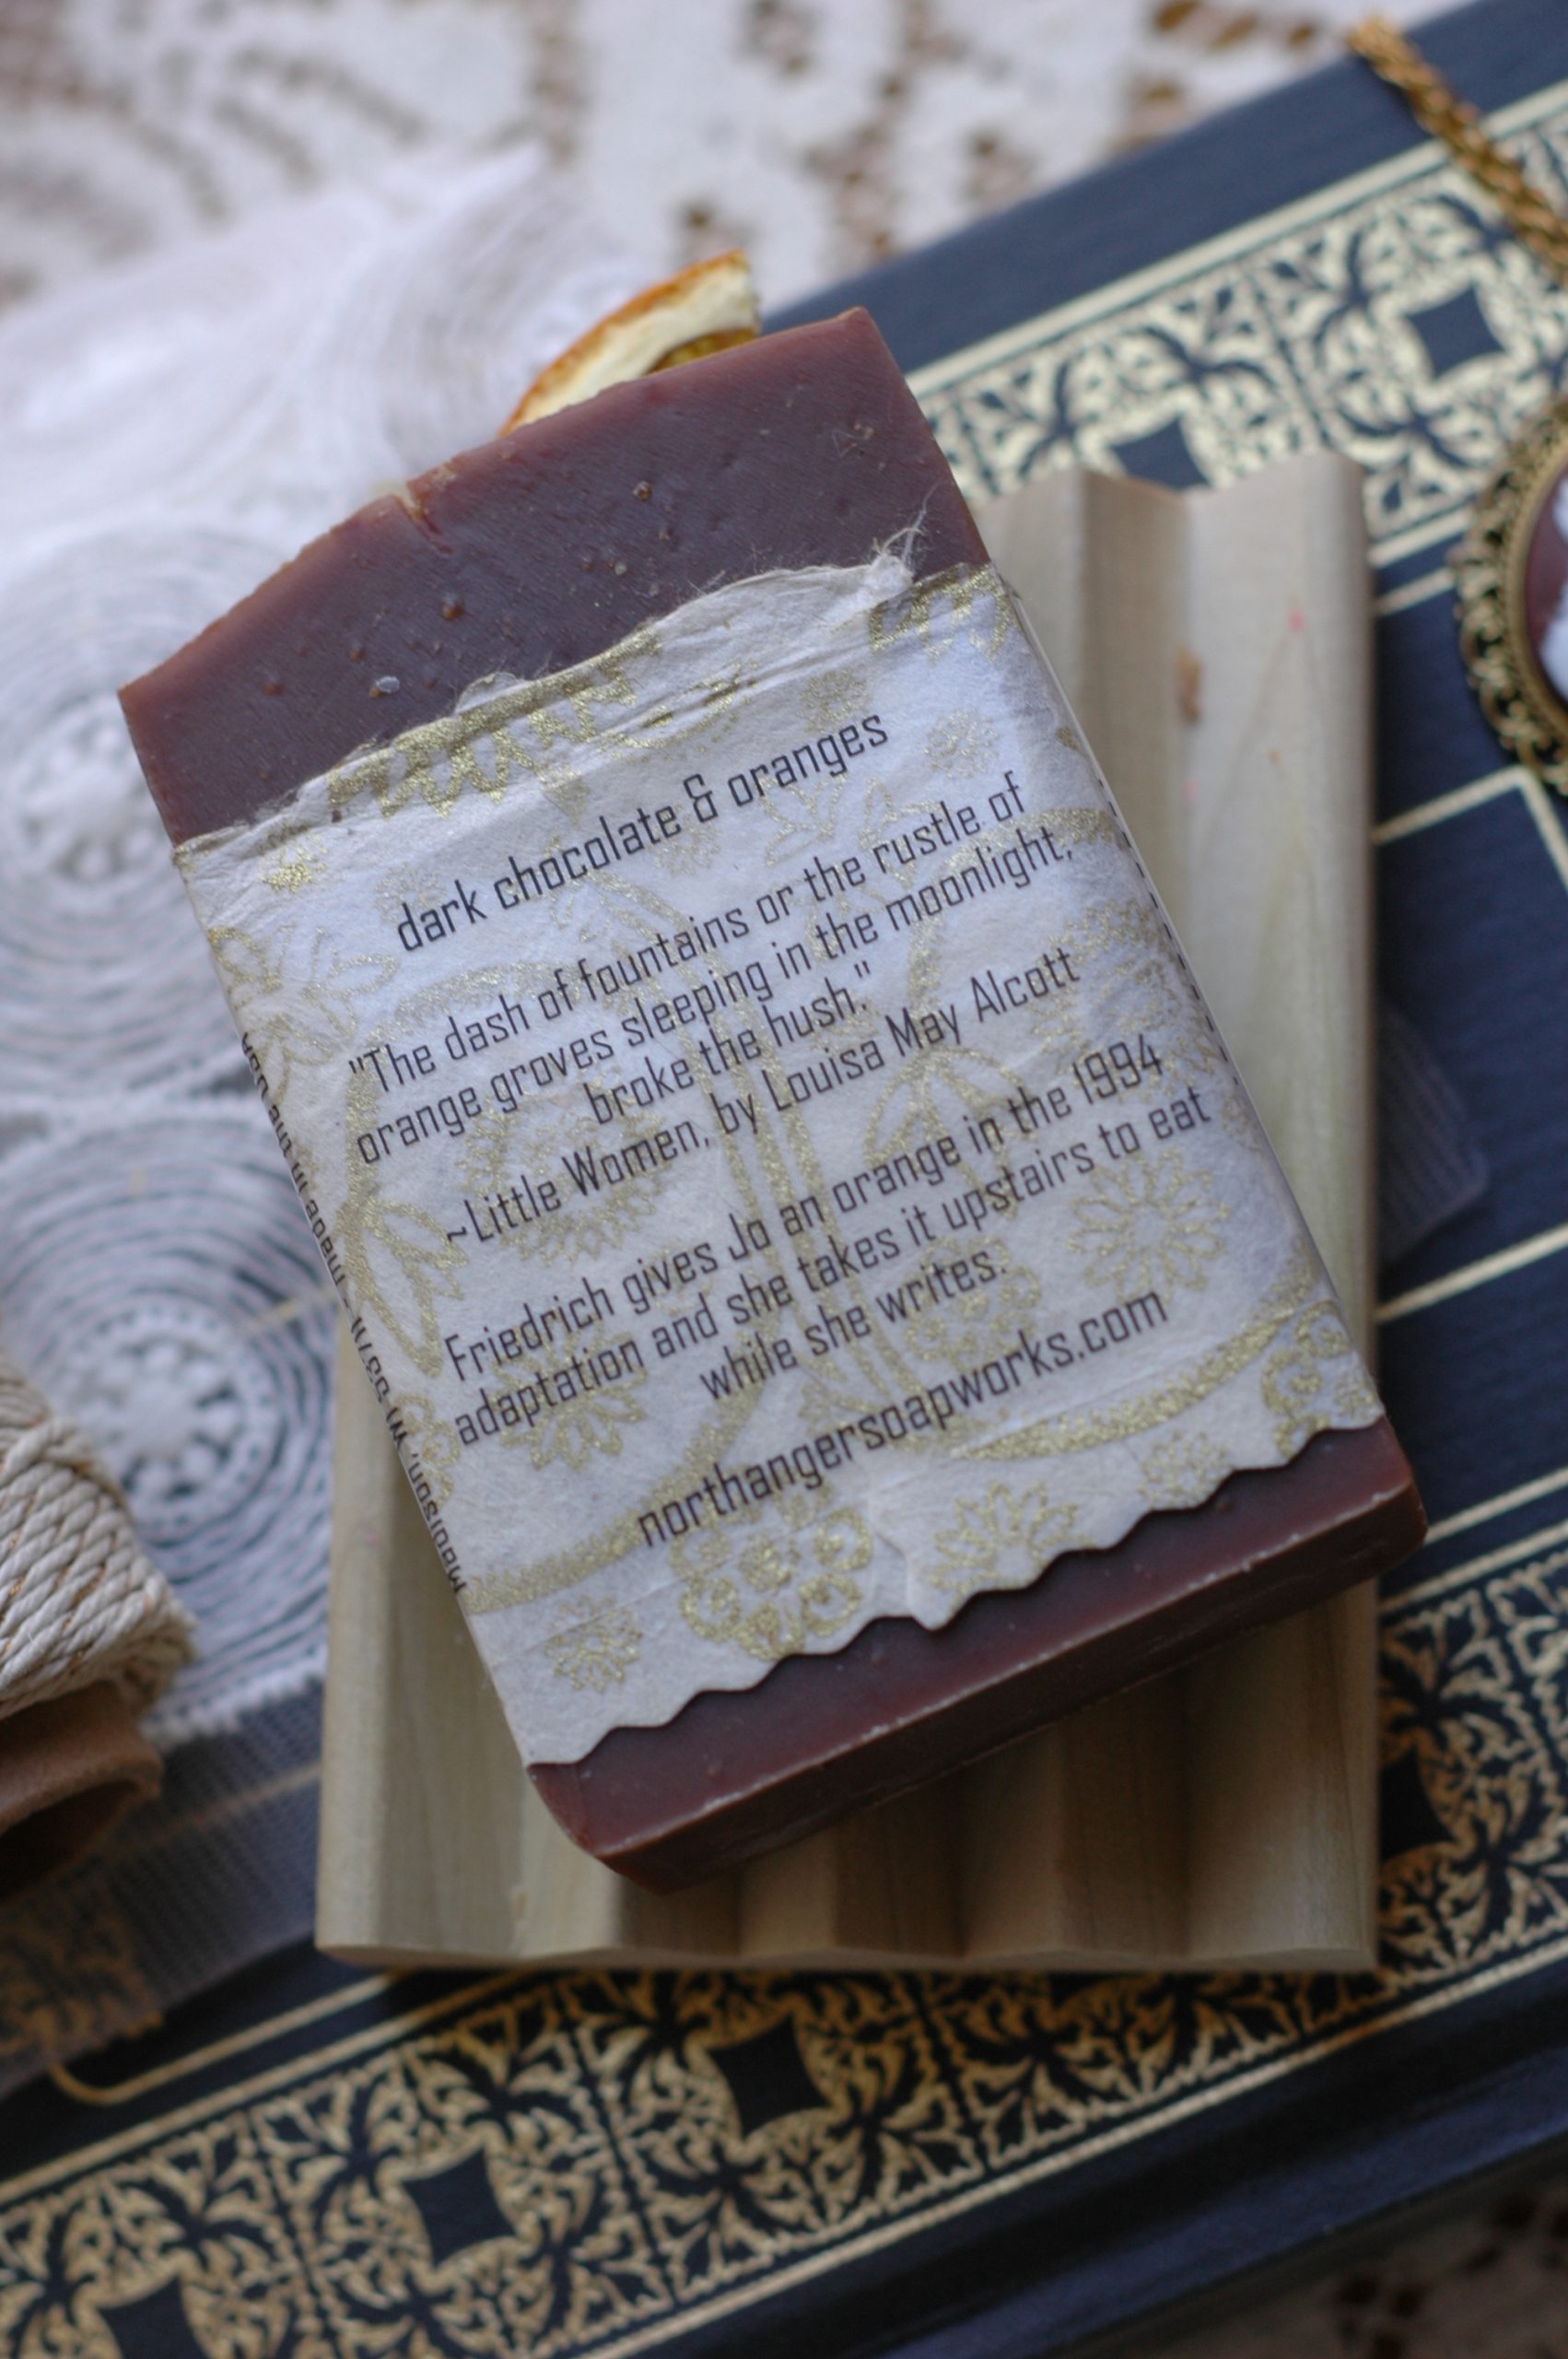 dark chocolate & oranges
"The dash of fountains or the rustle of
orange groves sleeping in the moonlight,
broke the hush."
~Little Women, by Louisa May Alcott
Friedrich gives Jo an orange in the 1994
adaptation and she takes it upstairs to eat
while she writes.
northangersoapworks.com
Madison, WI 53711 made in the USA